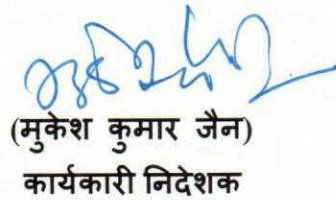 (मुकेश कुमार जैन)
कार्यकारी निदेशक